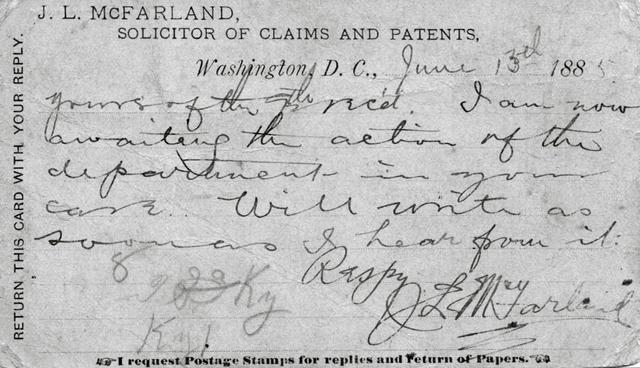 J. L. McFARLAND,
SOLICITOR OF CLAIMS AND PATENTS,
Washington, D. C., June 13th 1885
yours of the rec'd. I am now
awaiting the action of the
department in your
case. Will write as
soon as I hear from it.
Respy
J L McFarland
Ky
Ky
☞I request Postage Stamps for replies and return of Papers.☜
RETURN THIS CARD WITH YOUR REPLY.